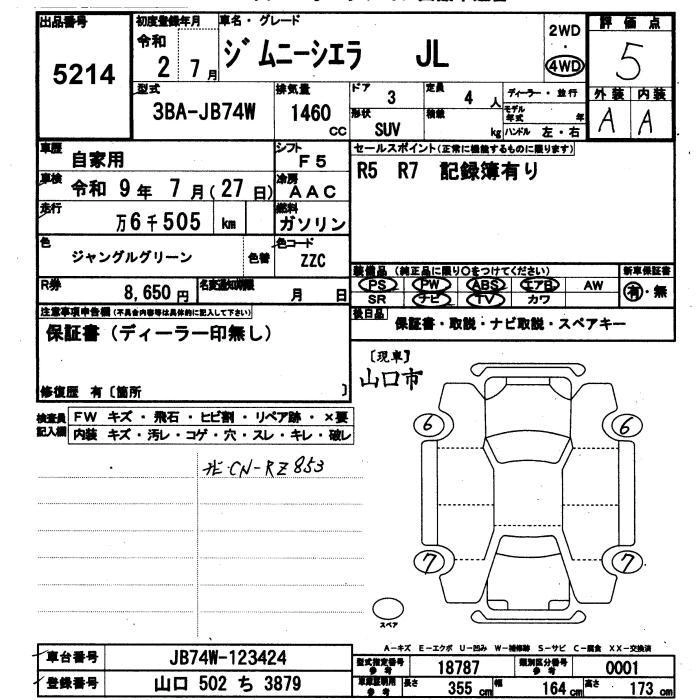 出品番号
5214
初度登録年月
令和
2 7月
車名・グレード
ジムニーシエラ JL
2WD
・
4WD
評価点
5
外装 内装
A A
型式
3BA-JB74W
排気量
1460
CC
ドア
3
定員
4 人
形状
SUV
積載
kg
ディーラー・並行
モデル年式 年
ハンドル 左・右
車歴
自家用
シフト
F5
車検
令和 9年 7月(27日)
冷房
AAC
走行
万6千505 km
燃料
ガソリン
色
ジャングルグリーン
色替
色コード
ZZC
R券
8,650円
名変通知期限
月 日
セールスポイント(正常に機能するものに限ります)
R5 R7 記録簿有り
装備品 (純正品に限り○をつけてください)
PS PW ABS エアB AW
SR ナビ TV カワ
新車保証書
有・無
後日品
保証書・取説・ナビ取説・スペアキー
注意事項申告欄(不具合内容等は具体的に記入して下さい)
保証書(ディーラー印無し)
修復歴 有〔箇所 〕
検査員記入欄
FW キズ・飛石・ヒビ割・リペア跡・×要
内装 キズ・汚レ・コゲ・穴・スレ・キレ・破レ
CN-RZ853
〔現車〕
山口市
6
6
7
7
スペア
A-キズ E-エクボ U-凹み W-補修跡 S-サビ C-腐食 XX-交換済
車台番号
JB74W-123424
登録番号
山口 502 ち 3879
型式指定番号
参考
18787
類別区分番号
参考
0001
車庫証明用
参考
長さ 355 cm 幅 164 cm 高さ 173 cm